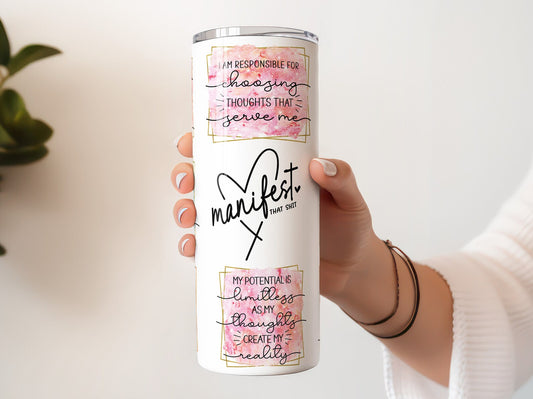 I AM RESPONSIBLE FOR
choosing
THOUGHTS THAT
serve me
manifest
THAT SHIT
MY POTENTIAL IS
limitless
AS MY
thoughts
CREATE MY
reality